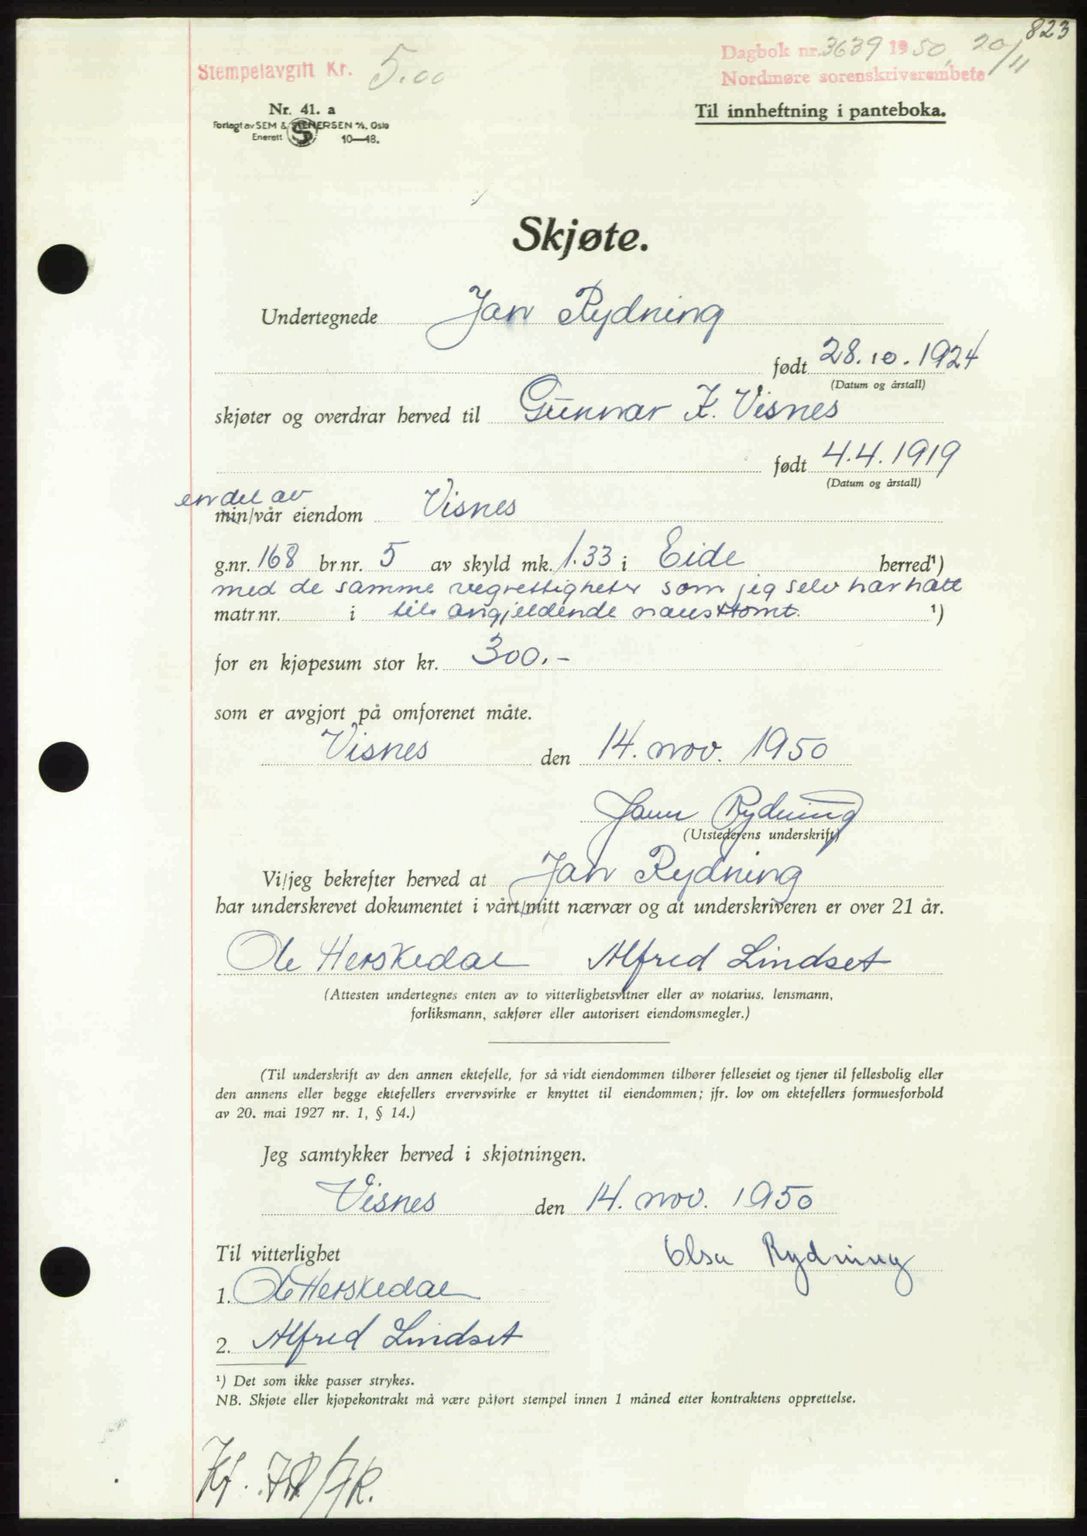 823
Stempelavgift Kr. 5.00
Dagbok nr. 3639 1950, 20/11
Nordmøre sorenskriverembete
Nr. 41. a
Forlagt av SEM & STENERSEN A/S, Oslo
Enerett 10—48.
Til innheftning i panteboka.
Skjøte.
Undertegnede Jan Rydning
født 28.10.1924
(Datum og årstall)
skjøter og overdrar herved til Gunnar K. Visnes
født 4.4.1919
(Datum og årstall)
en del av
min/vår eiendom Visnes
g.nr. 168 br nr. 5 av skyld mk. 1.33 i Eide herred¹)
med de samme vegrettigheter som jeg selv har hatt
matr nr. i til angjeldende nausttomt. ¹)
for en kjøpesum stor kr. 300.-
som er avgjort på omforenet måte.
Visnes den 14. nov. 1950
Jann Rydning
(Utstederens underskrift)
Vi/jeg bekrefter herved at Jan Rydning
har underskrevet dokumentet i vårt/mitt nærvær og at underskriveren er over 21 år.
Ole Herskedal Alfred Lindset
(Attesten undertegnes enten av to vitterlighetsvitner eller av notarius, lensmann,
forliksmann, sakfører eller autorisert eiendomsmegler.)
(Til underskrift av den annen ektefelle, for så vidt eiendommen tilhører felleseiet og tjener til fellesbolig eller
den annens eller begge ektefellers ervervsvirke er knyttet til eiendommen; jfr. lov om ektefellers formuesforhold
av 20. mai 1927 nr. 1, § 14.)
Jeg samtykker herved i skjøtningen.
Visnes den 14. nov. 1950
Til vitterlighet Elsa Rydning
1. Ole Herskedal
2. Alfred Lindset
¹) Det som ikke passer strykes.
NB. Skjøte eller kjøpekontrakt må være påført stempel innen 1 måned etter kontraktens opprettelse.